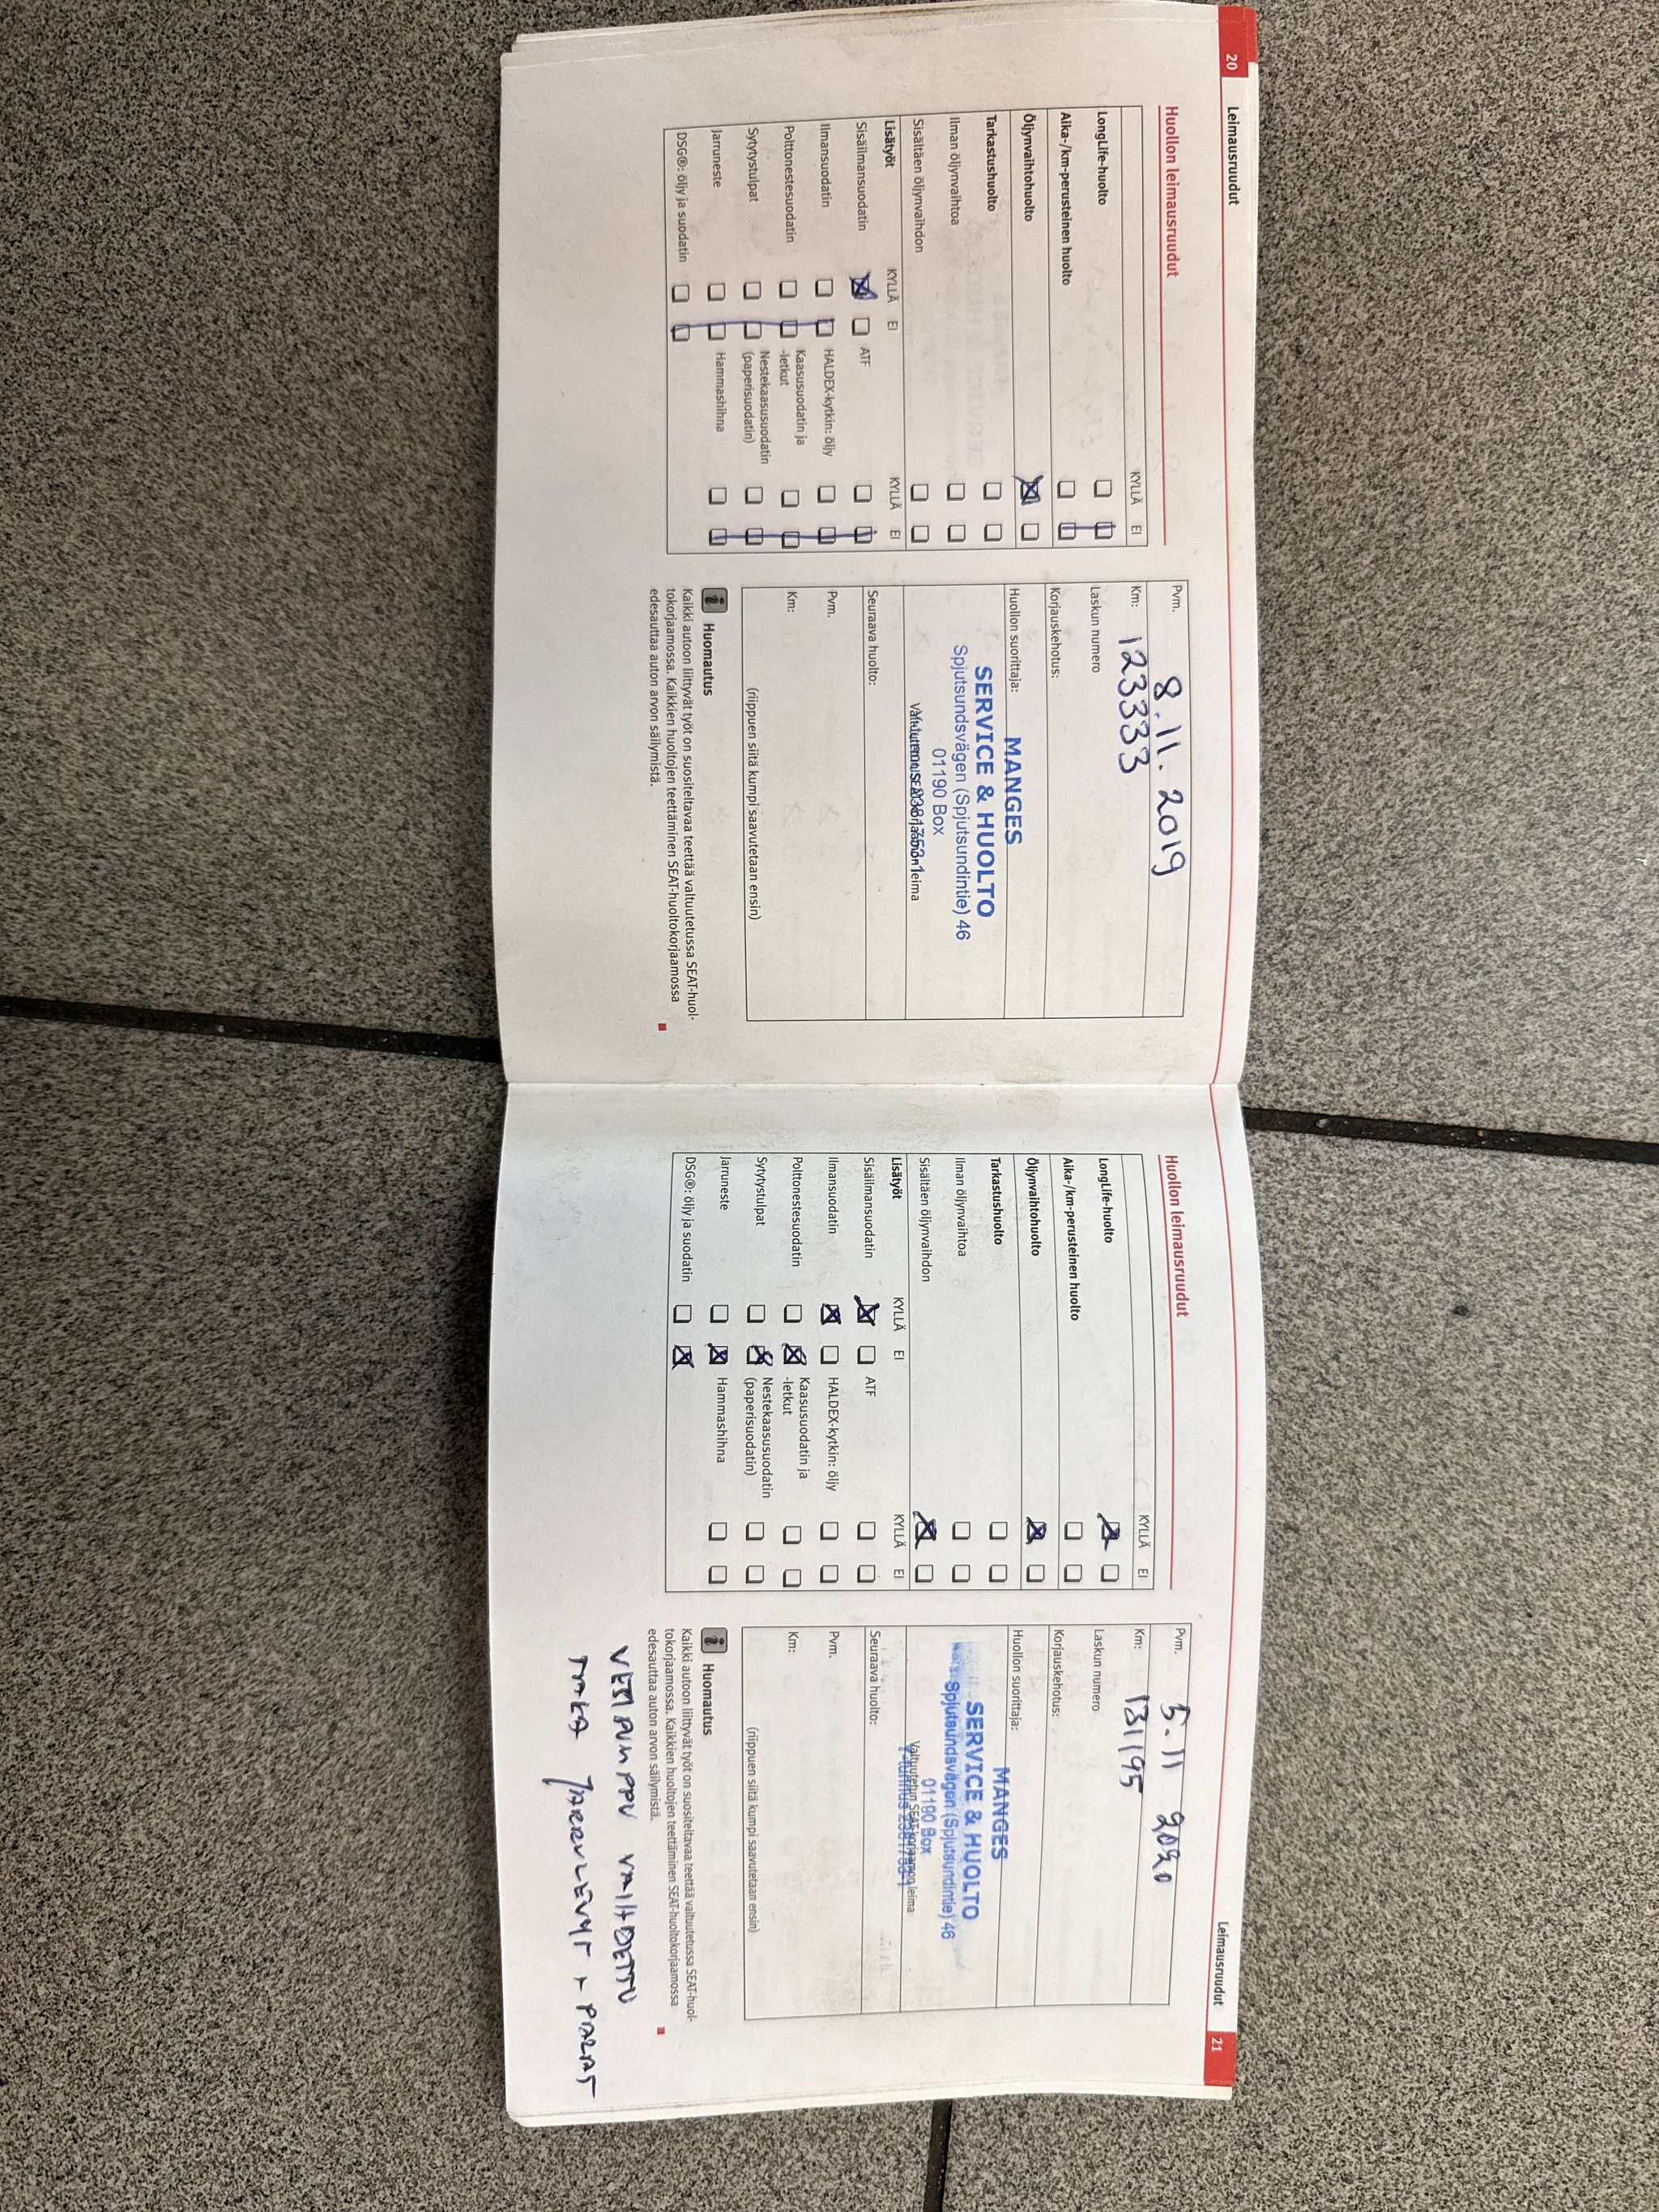 20
Leimausruudut
Huollon leimausruudut
KYLLÄ EI
LongLife-huolto
Aika-/km-perusteinen huolto
Öljynvaihtohuolto
Tarkastushuolto
Ilman öljynvaihtoa
Sisältäen öljynvaihdon
Lisätyöt KYLLÄ EI KYLLÄ EI
Sisäilmansuodatin ATF
Ilmansuodatin HALDEX-kytkin: öljy
Polttonestesuodatin Kaasusuodatin ja
-letkut
Sytytystulpat Nestekaasusuodatin
(paperisuodatin)
Jarruneste Hammashihna
DSG®: öljy ja suodatin
Pvm. 8.11.2019
Km: 123333
Laskun numero
Korjauskehotus:
Huollon suorittaja:
MANGES
SERVICE & HUOLTO
Spjutsundsvägen (Spjutsundintie) 46
01190 Box
leima
Seuraava huolto:
Pvm.
Km:
(riippuen siitä kumpi saavutetaan ensin)
Huomautus
Kaikki autoon liittyvät työt on suositeltavaa teettää valtuutetussa SEAT-huol-
tokorjaamossa. Kaikkien huoltojen teettäminen SEAT-huoltokorjaamossa
edesauttaa auton arvon säilymistä.
Leimausruudut
21
Huollon leimausruudut
KYLLÄ EI
LongLife-huolto
Aika-/km-perusteinen huolto
Öljynvaihtohuolto
Tarkastushuolto
Ilman öljynvaihtoa
Sisältäen öljynvaihdon
Lisätyöt KYLLÄ EI KYLLÄ EI
Sisäilmansuodatin ATF
Ilmansuodatin HALDEX-kytkin: öljy
Polttonestesuodatin Kaasusuodatin ja
-letkut
Sytytystulpat Nestekaasusuodatin
(paperisuodatin)
Jarruneste Hammashihna
DSG®: öljy ja suodatin
Pvm. 5.11 2020
Km: 131195
Laskun numero
Korjauskehotus:
Huollon suorittaja:
MANGES
SERVICE & HUOLTO
Spjutsundsvägen (Spjutsundintie) 46
01190 Box
Valtuutetun SEAT-korjaamon leima
Seuraava huolto:
Pvm.
Km:
(riippuen siitä kumpi saavutetaan ensin)
Huomautus
Kaikki autoon liittyvät työt on suositeltavaa teettää valtuutetussa SEAT-huol-
tokorjaamossa. Kaikkien huoltojen teettäminen SEAT-huoltokorjaamossa
edesauttaa auton arvon säilymistä.
VESI PUMPPU VAIHDETTU
TAKA JARRULEVYT + PALAT